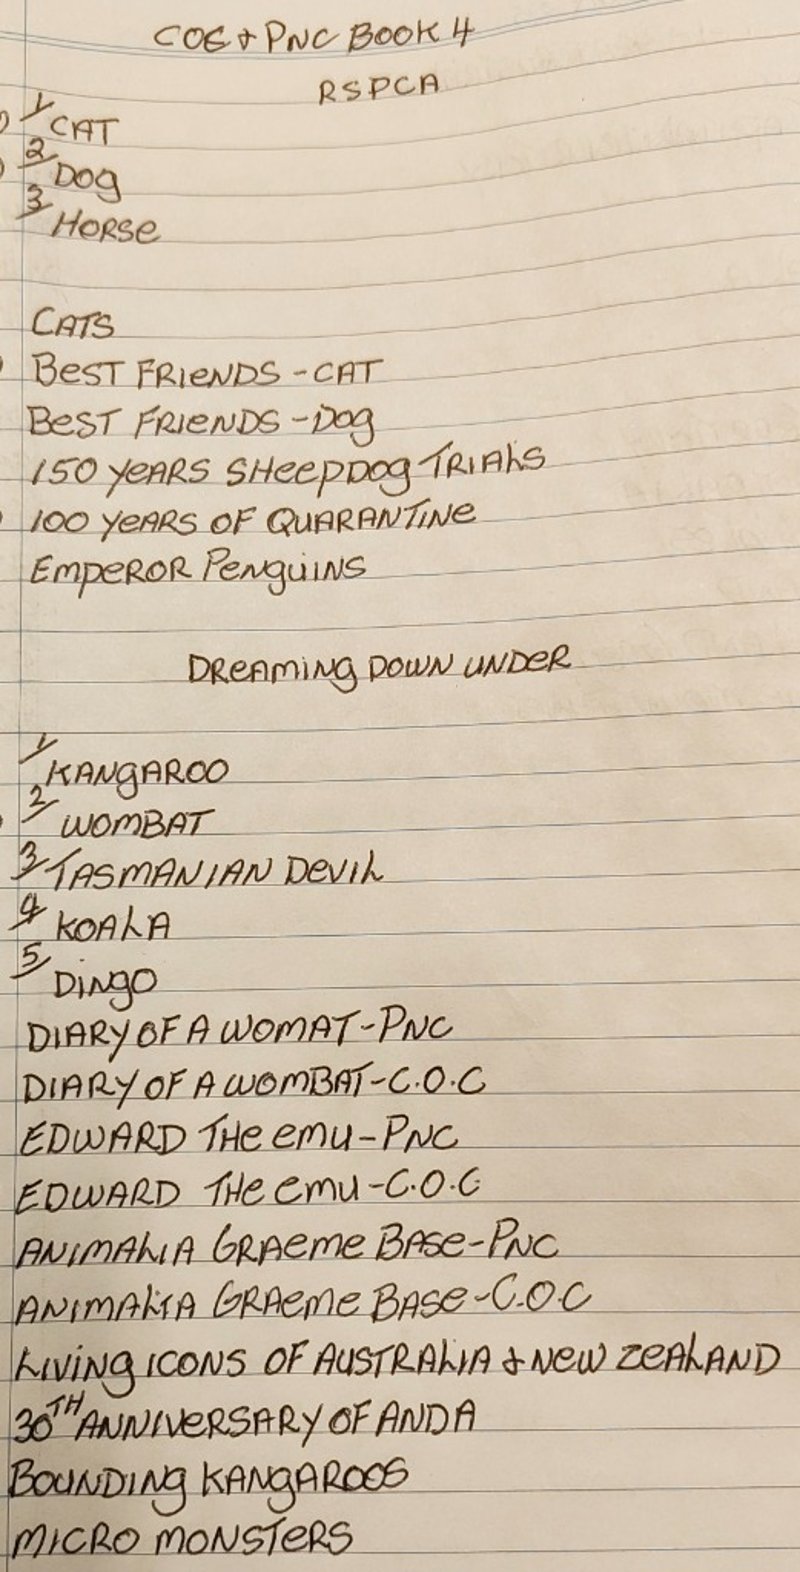 COE & PNC BOOK 4
RSPCA
1/ CAT
2/ DOG
3/ HORSE
CATS
BEST FRIENDS - CAT
BEST FRIENDS - DOG
150 YEARS SHEEPDOG TRIALS
100 YEARS OF QUARANTINE
EMPEROR PENGUINS
DREAMING DOWN UNDER
1/ KANGAROO
2/ WOMBAT
3/ TASMANIAN DEVIL
4/ KOALA
5/ DINGO
DIARY OF A WOMAT - PNC
DIARY OF A WOMBAT - C.O.C
EDWARD THE EMU - PNC
EDWARD THE EMU - C.O.C
ANIMALIA GRAEME BASE - PNC
ANIMALIA GRAEME BASE - C.O.C
LIVING ICONS OF AUSTRALIA & NEW ZEALAND
30TH ANNIVERSARY OF ANDA
BOUNDING KANGAROOS
MICRO MONSTERS